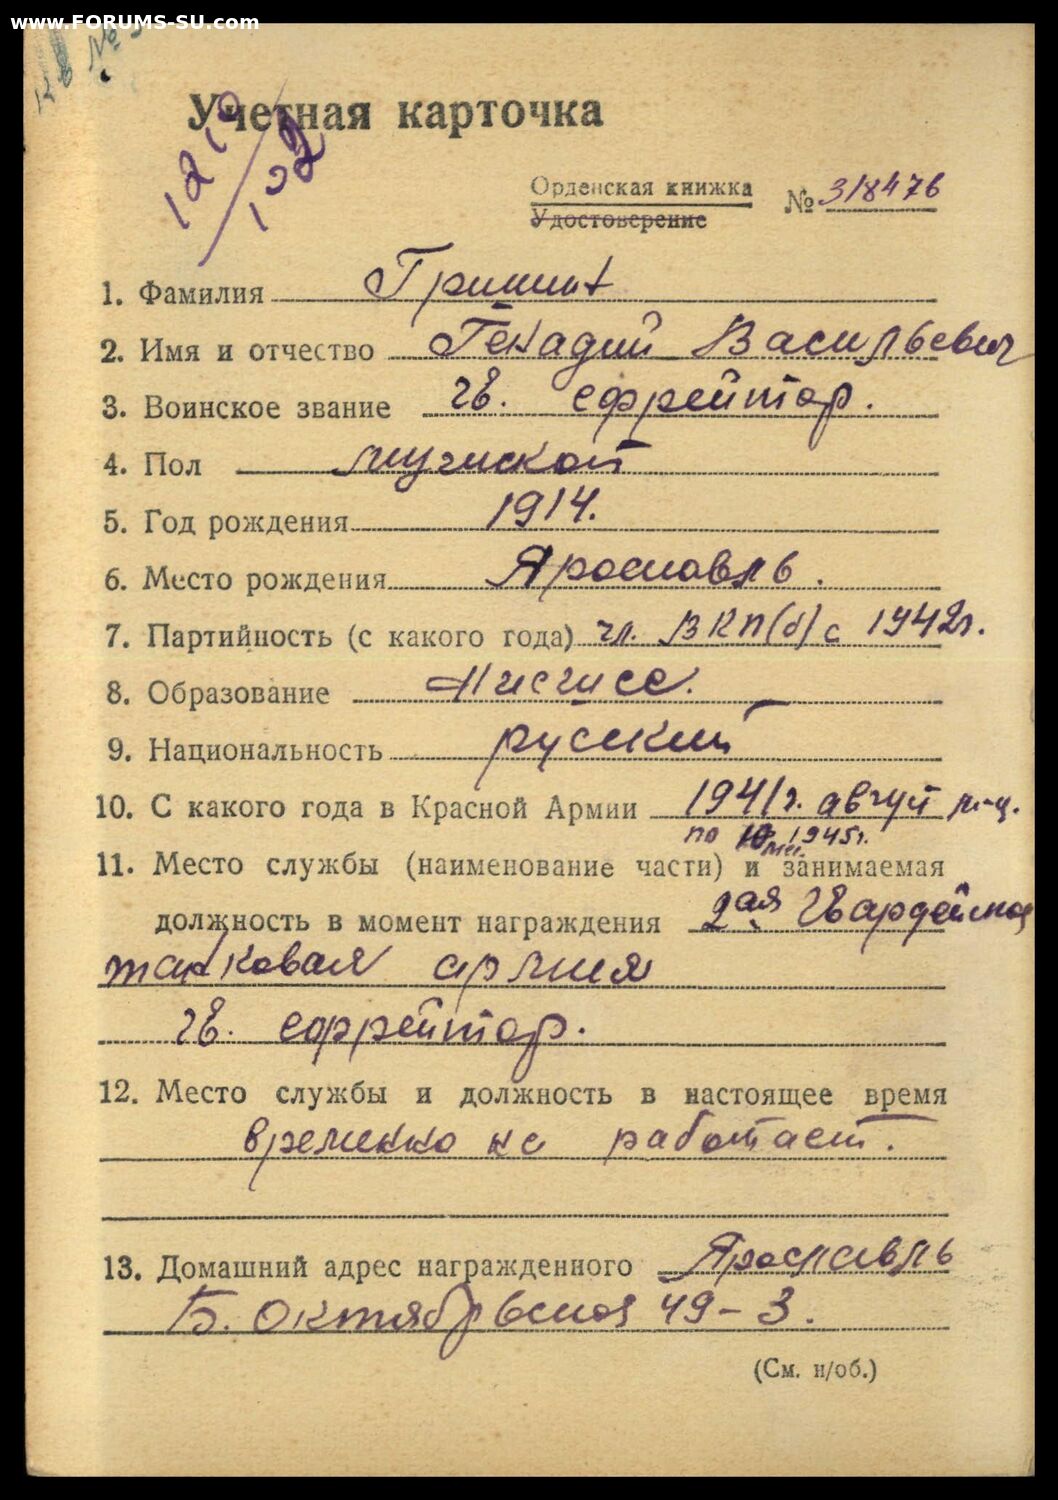 www.FORUMS-SU.com
Учетная карточка
1210/122
Орденская книжка
Удостоверение
№ 318476
1. Фамилия
2. Имя и отчество Генадий Васильевич
3. Воинское звание гв. ефрейтор.
4. Пол мужской
5. Год рождения 1914.
6. Место рождения Ярославль.
7. Партийность (с какого года) чл. ВКП(б) с 1942г.
8. Образование Низшее.
9. Национальность русский
10. С какого года в Красной Армии 1941г. август м-ц.
по 1945г.
11. Место службы (наименование части) и занимаемая
должность в момент награждения 2ая Гвардейская
танковая армия
гв. ефрейтор.
12. Место службы и должность в настоящее время
временно не работает.
13. Домашний адрес награжденного Ярославль
Б. Октябрьская 49-3.
(См. н/об.)